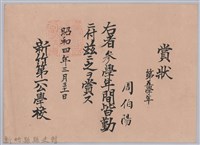 賞狀
第參學年
周伯陽
右者參學年間皆勤
ニ付玆ニ之ヲ賞ス
昭和四年三月二十三日
新竹第一公學校